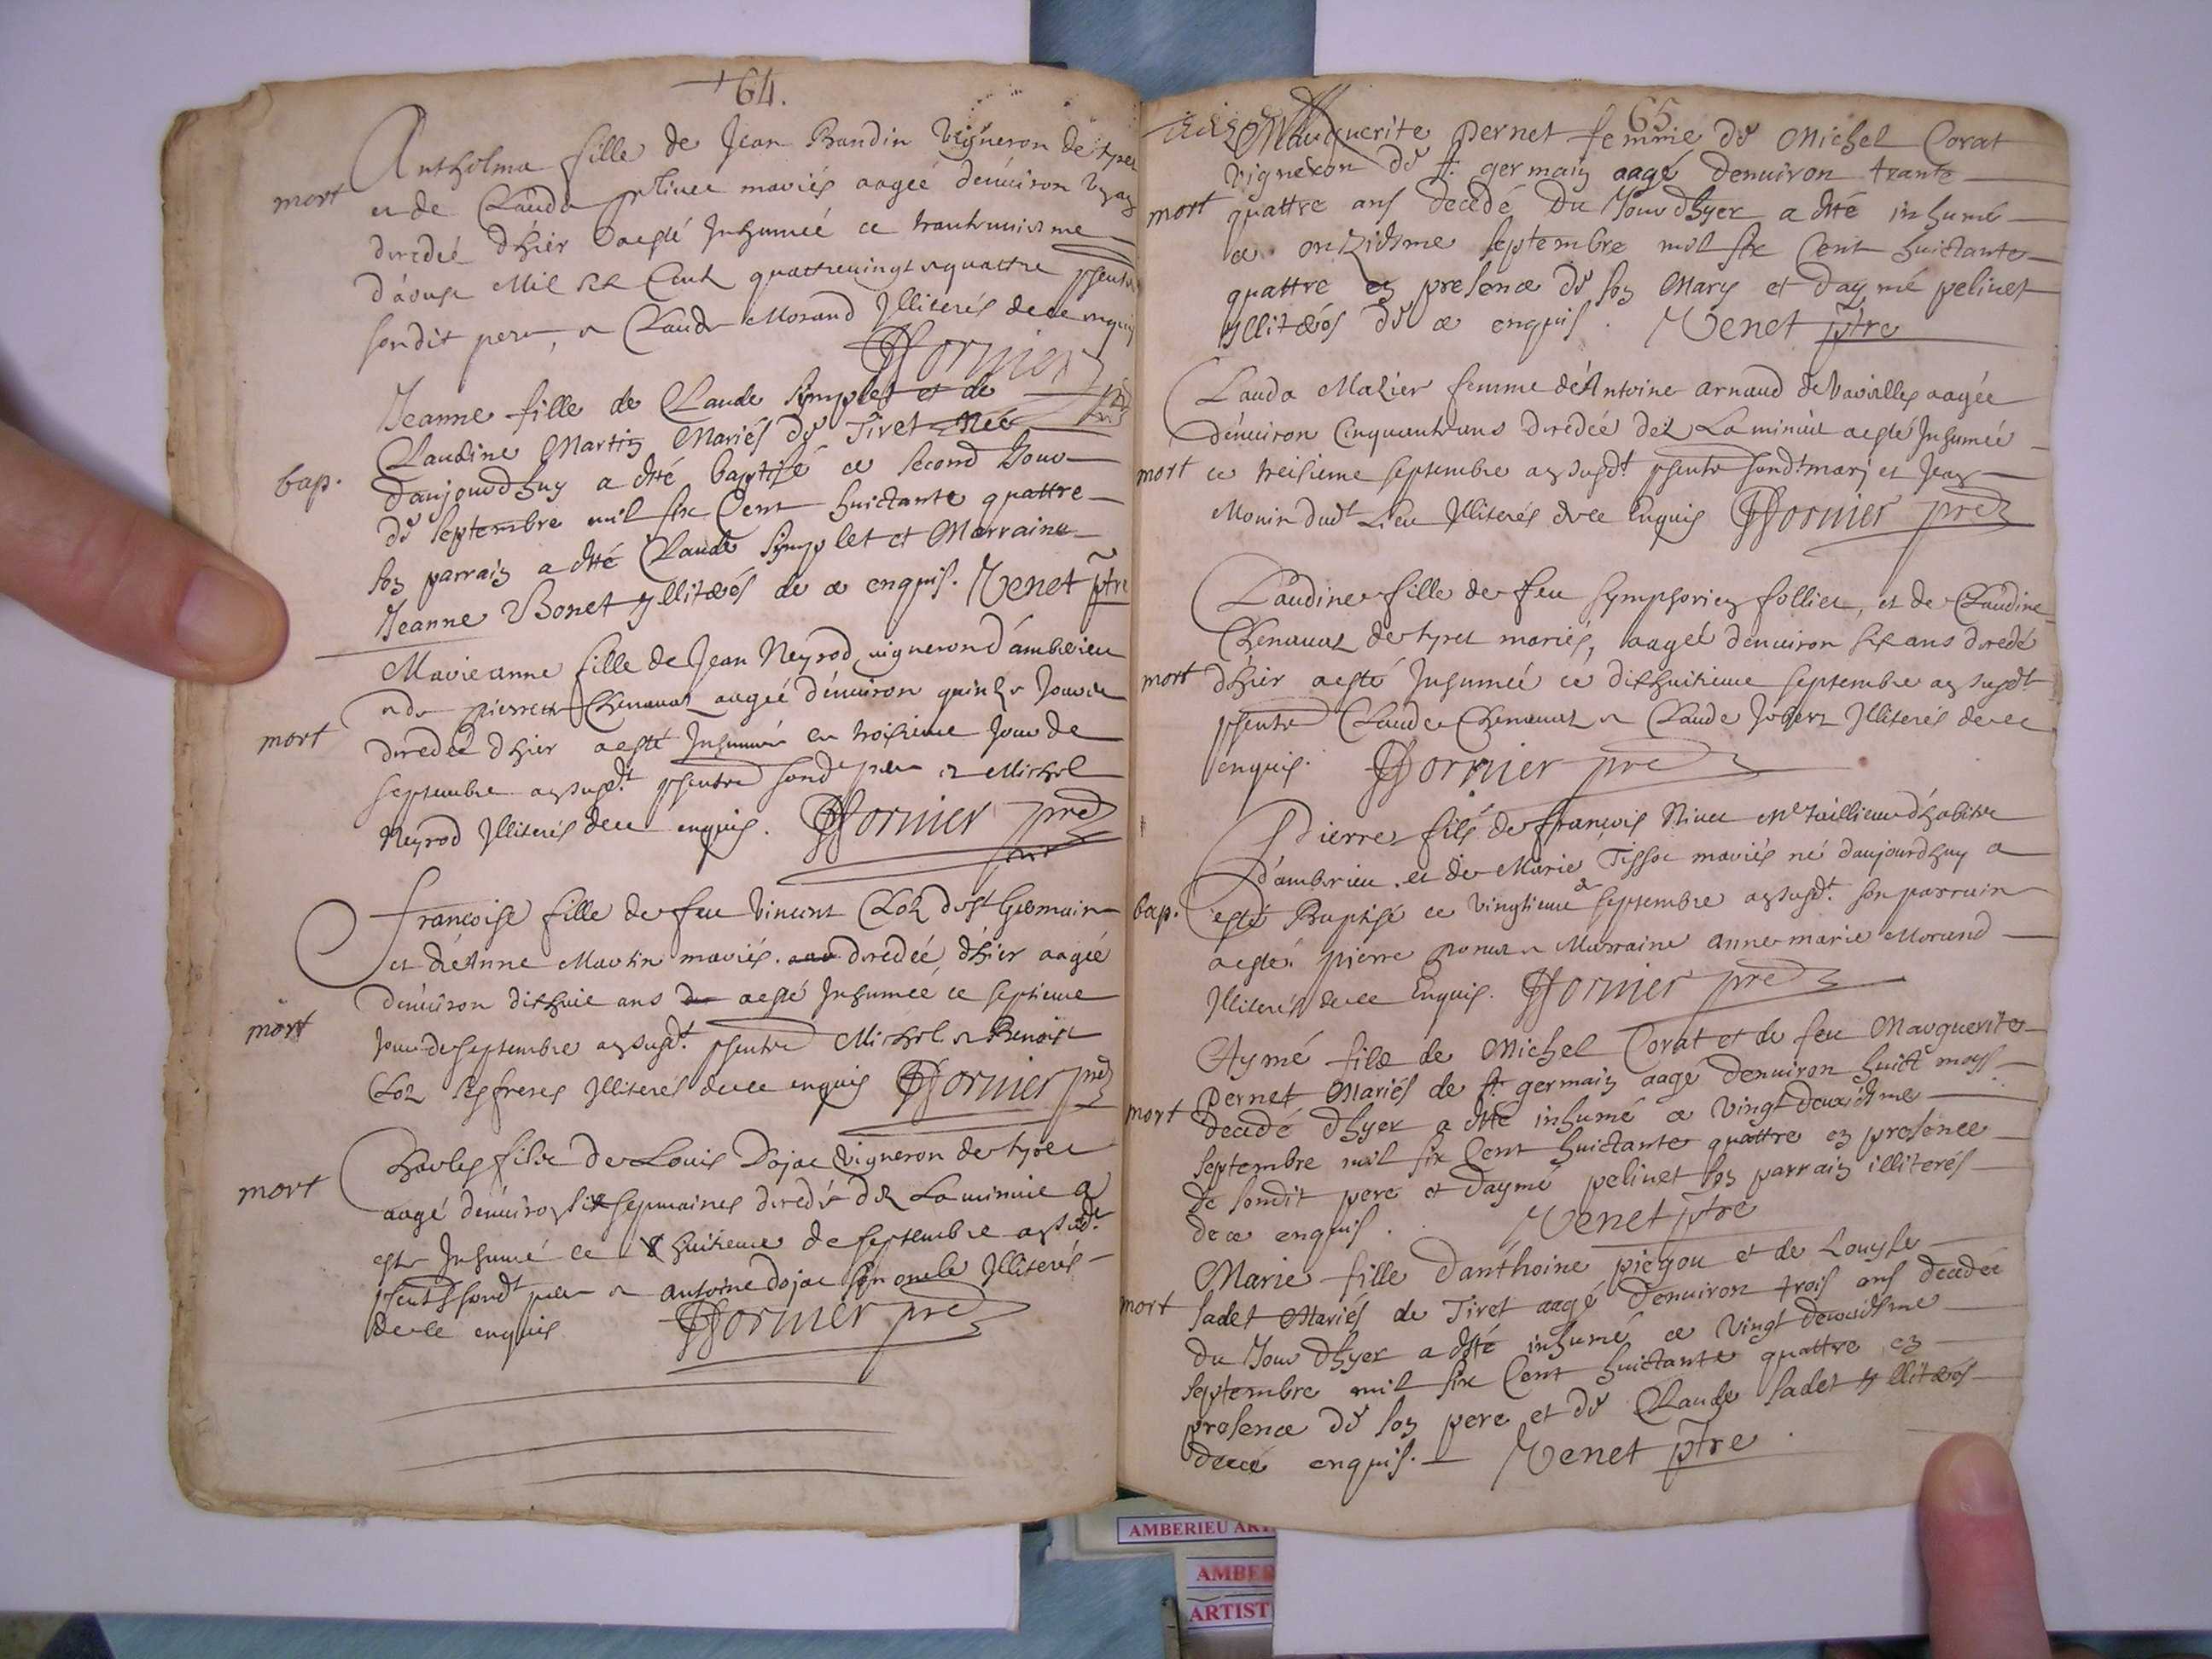 64.
Antholma fille de Jean Bandin vigneron de tyret
mort
et de Clauda mariés aagée d'enuiron
decedeé d'hier a esté Inhumeé ce trantuniesme
d'aoust Mil six Cents quattrevingt et quattre psents
sondit pere, et Claude Morand Illiterés de ce enquis
Dornier
Jeanne fille de Claude Symplet et de
Claudine Martin Mariés de Tiret Née
bap.
daujourdhuy a esté baptisé ce second Jour
de septembre mil six Cent huictante quattre
son parrain a esté Claude Symplet et Marraine
Jeanne Bonet yllitérés de ce enquis. Venet ptre
Marieanne fille de Jean Neyrod vigneron d'amberieu
et de pierrette Chenauaz aagée d'enuiron quinze Jours
mort
decedée d'hier a esté Inhumée ce troisieme Jour de
septembre an susdt. psents sondt pere et Michel
Neyrod Illiterés de ce enquis. Dornier pre
Françoise fille de feu Vincent Cloz de St Germain
et de Anne Martin mariés. decedeé, d'hier aagée
d'enuiron dixhuit ans a esté Inhumeé ce septieme
mort
Jour de septembre an susdt. psents Michel et Benoist
Cloz ses freres Illiterés de ce enquis Dornier pre
Charles fils de Louis Dojat vigneron de tyret
mort
aagé d'enuiron six sepmaines decedé dez La minuit a
esté Inhumé ce huitieme de septembre an susdt
psents sondt pere et antoine dojat son oncle Illiterés
de ce enquis Dornier pre
65
Marguerite pernet femme de Michel Corat
vigneron de st. germain aagé denuiron trante
mort
quattre ans decedé du Jour dhyer a esté inhumé
ce onziesme septembre mil six Cent huictante
quattre en presence de son Mary et daymé pelinet
yllitérés de ce enquis. Venet ptre
Clauda Mazier femme de Antoine arnaud de Vauilles aagée
d'enuiron Cinquante ans decedée dez La minuit a esté Inhumée
mort
ce treisieme septembre an susdt psents sondt mary et Jean
Monin dudt Lieu Illiterés de ce Enquis Dornier pre
Claudine fille de feu Symphorien follier, et de Claudine
Chenauaz de tyret mariés, aageé d'enuiron six ans decedé
mort
d'hier a esté Inhumeé ce dixhuitieme septembre an susdt
psents Claude Chenauaz et Claude Jobert Illiterés de ce
enquis. Dornier pre
Pierre fils de françois Niuet Me taillieur d'habits
d'amberieu. et de Marie Tissot mariés né daujourdhuy a
bap.
esté Baptisé ce vingtieme de septembre an susdt. son parrain
a esté pierre ponut et Marraine anne marie Morand
Illiterés de ce Enquis. Dornier pre
Aymé filz de Michel Corat et de feu Marguerite
pernet Mariés de st. germain aagé denuiron huict moys
mort
decedé dhyer a esté inhumé ce vingt deuxiesme
septembre mil six Cent huictante quattre en presence
de sondit pere et dayme pelinet son parrain illiterés
de ce enquis. Venet ptre
Marie fille danthoine piegou et de Louyse
mort
sadet Mariés de Tiret aagé denuiron trois ans decedée
du Jour dhyer a esté inhumé ce vingt deuxiesme
septembre mil six Cent huictante quattre en
presence de son pere et de Claude sadet yllitérés
de ce enquis. Venet ptre
AMBERIEU